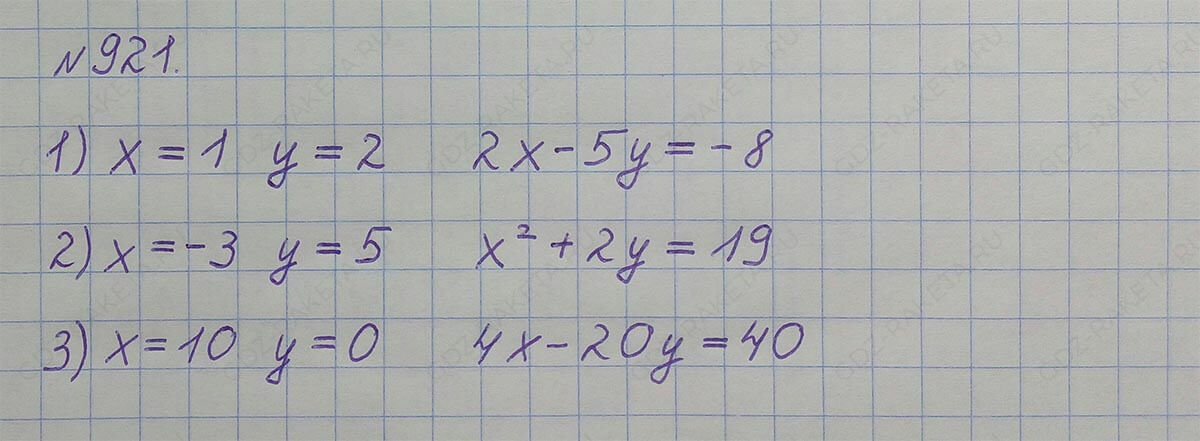 №921.
1) x = 1 y = 2 2x - 5y = -8
2) x = -3 y = 5 x² + 2y = 19
3) x = 10 y = 0 4x - 20y = 40